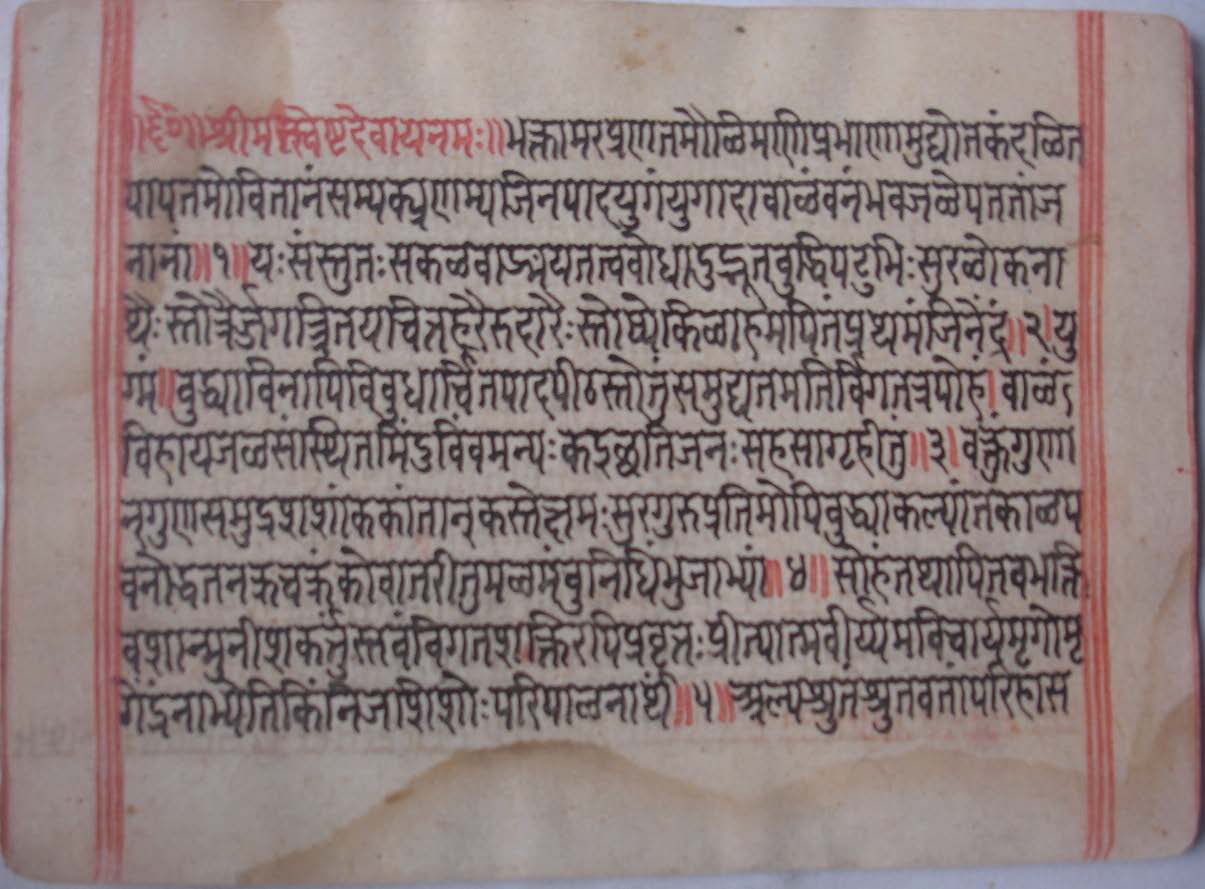 ॥र्द॰॥श्रीमत्स्वेष्टदेवायनमः॥भक्तामरप्रणतमौळिमणिप्रभाणामुद्योतकंदळित
पापतमोवितानंसम्यक्प्रणम्यजिनपादयुगंयुगादावाळंवनंभवजळेपततांज
नानां॥१॥यःसंस्तुतःसकळवाङ्मयतत्त्ववोधादुद्भूतवुद्धिपटुभिःसुरळोकना
थैःस्तोत्रैर्ज्जगत्त्रितयचित्तहरैरुदारैःस्तोष्येकिळाहमपितंप्रथमंजिनेंद्रं॥२॥यु
ग्मं॥वुद्ध्याविनापिविवुधार्च्चितपादपीठस्तोतुंसमुद्यतमतिर्विगतत्रपोहं।वाळं
विहायजळसंस्थितमिंदुविंवमन्यःकइछतिजनःसहसाग्रृहीतुं॥३।वक्तुंगुणा
न्गुणसमुद्रशशांककांतान्कस्तेक्षमःसुरगुरुप्रतिमोपिवुद्ध्याकल्पांतकाळप
वनोद्धतनक्रचक्रंकोवातरीतुमळमंवुनिधिंभुजाभ्यां॥४॥सोहंतथापितवभक्ति
वशान्मुनीशकर्त्तुंस्तवंविगतशक्तिरपिप्रवृत्तःप्रीत्यात्मवीर्य्यमविचार्यमृगोमृ
गेंद्रंनाभ्येतिकिंनिजशिशोःपरिपाळनार्थं॥५॥अल्पश्रुतंश्रुतवतांपरिहास